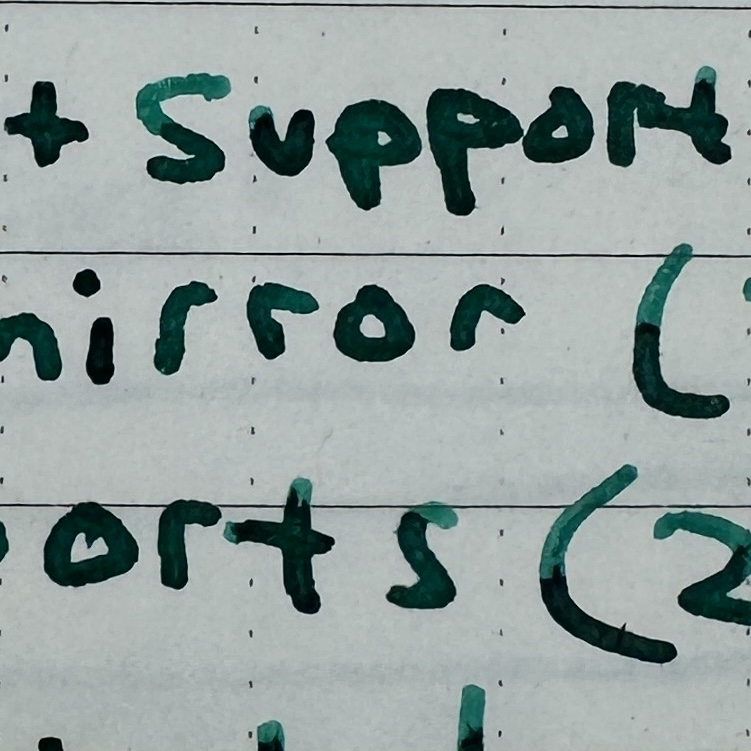 + Support
mirror (
ports (2